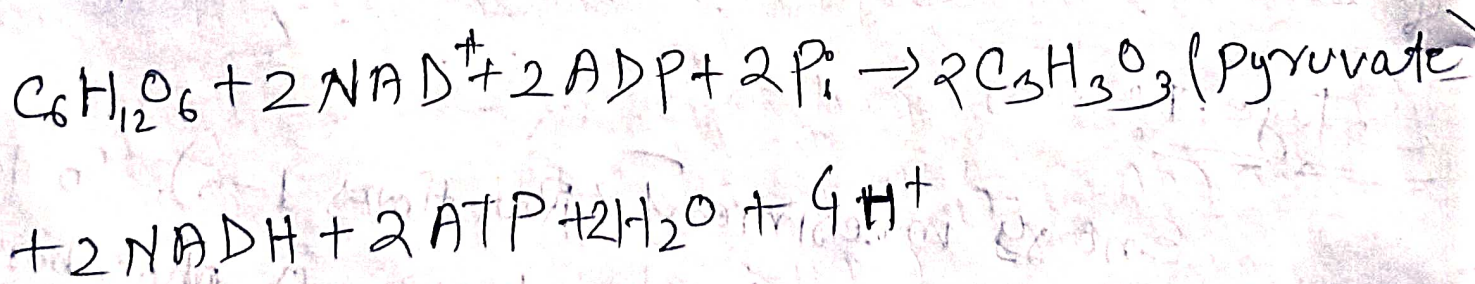 C₆H₁₂O₆ + 2 NAD⁺ + 2 ADP + 2 Pᵢ → 2 C₃H₃O₃ (Pyruvate)
+ 2 NADH + 2 ATP + 2H₂O + 4H⁺